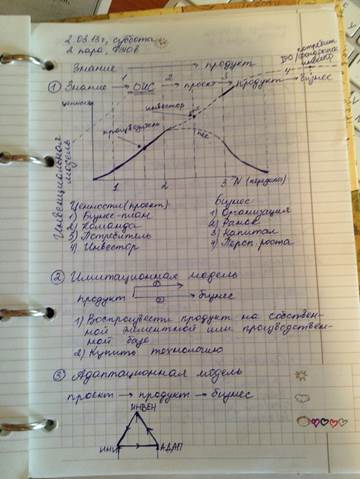 2.03.13г, суббота
2 пара,
Знание продукт
① Знание → ОИС → проект → продукт → бизнес
1 2 3 4
ценность
инвестор
производитель
Инвенционная
модель
1 2 3 N (передела)
Ценности (проект)
1) Бизнес-план
2) Команда
3) Потребитель
4) Инвестор
Бизнес
1) Организация
2) Рынок
3) Капитал
4) Персп. роста
② Имитационная модель
продукт бизнес
1) Воспроизвести продукт на собствен-
ной элементной или производствен-
ной базе
2) Купить технологию
③ Адаптационная модель
проект → продукт → бизнес
ИНВЕН
АДАП